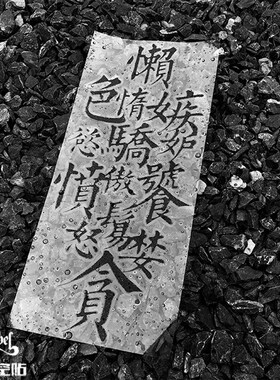 懶惰
嫉妒
色慾
驕傲
饕
憤怒
貪婪